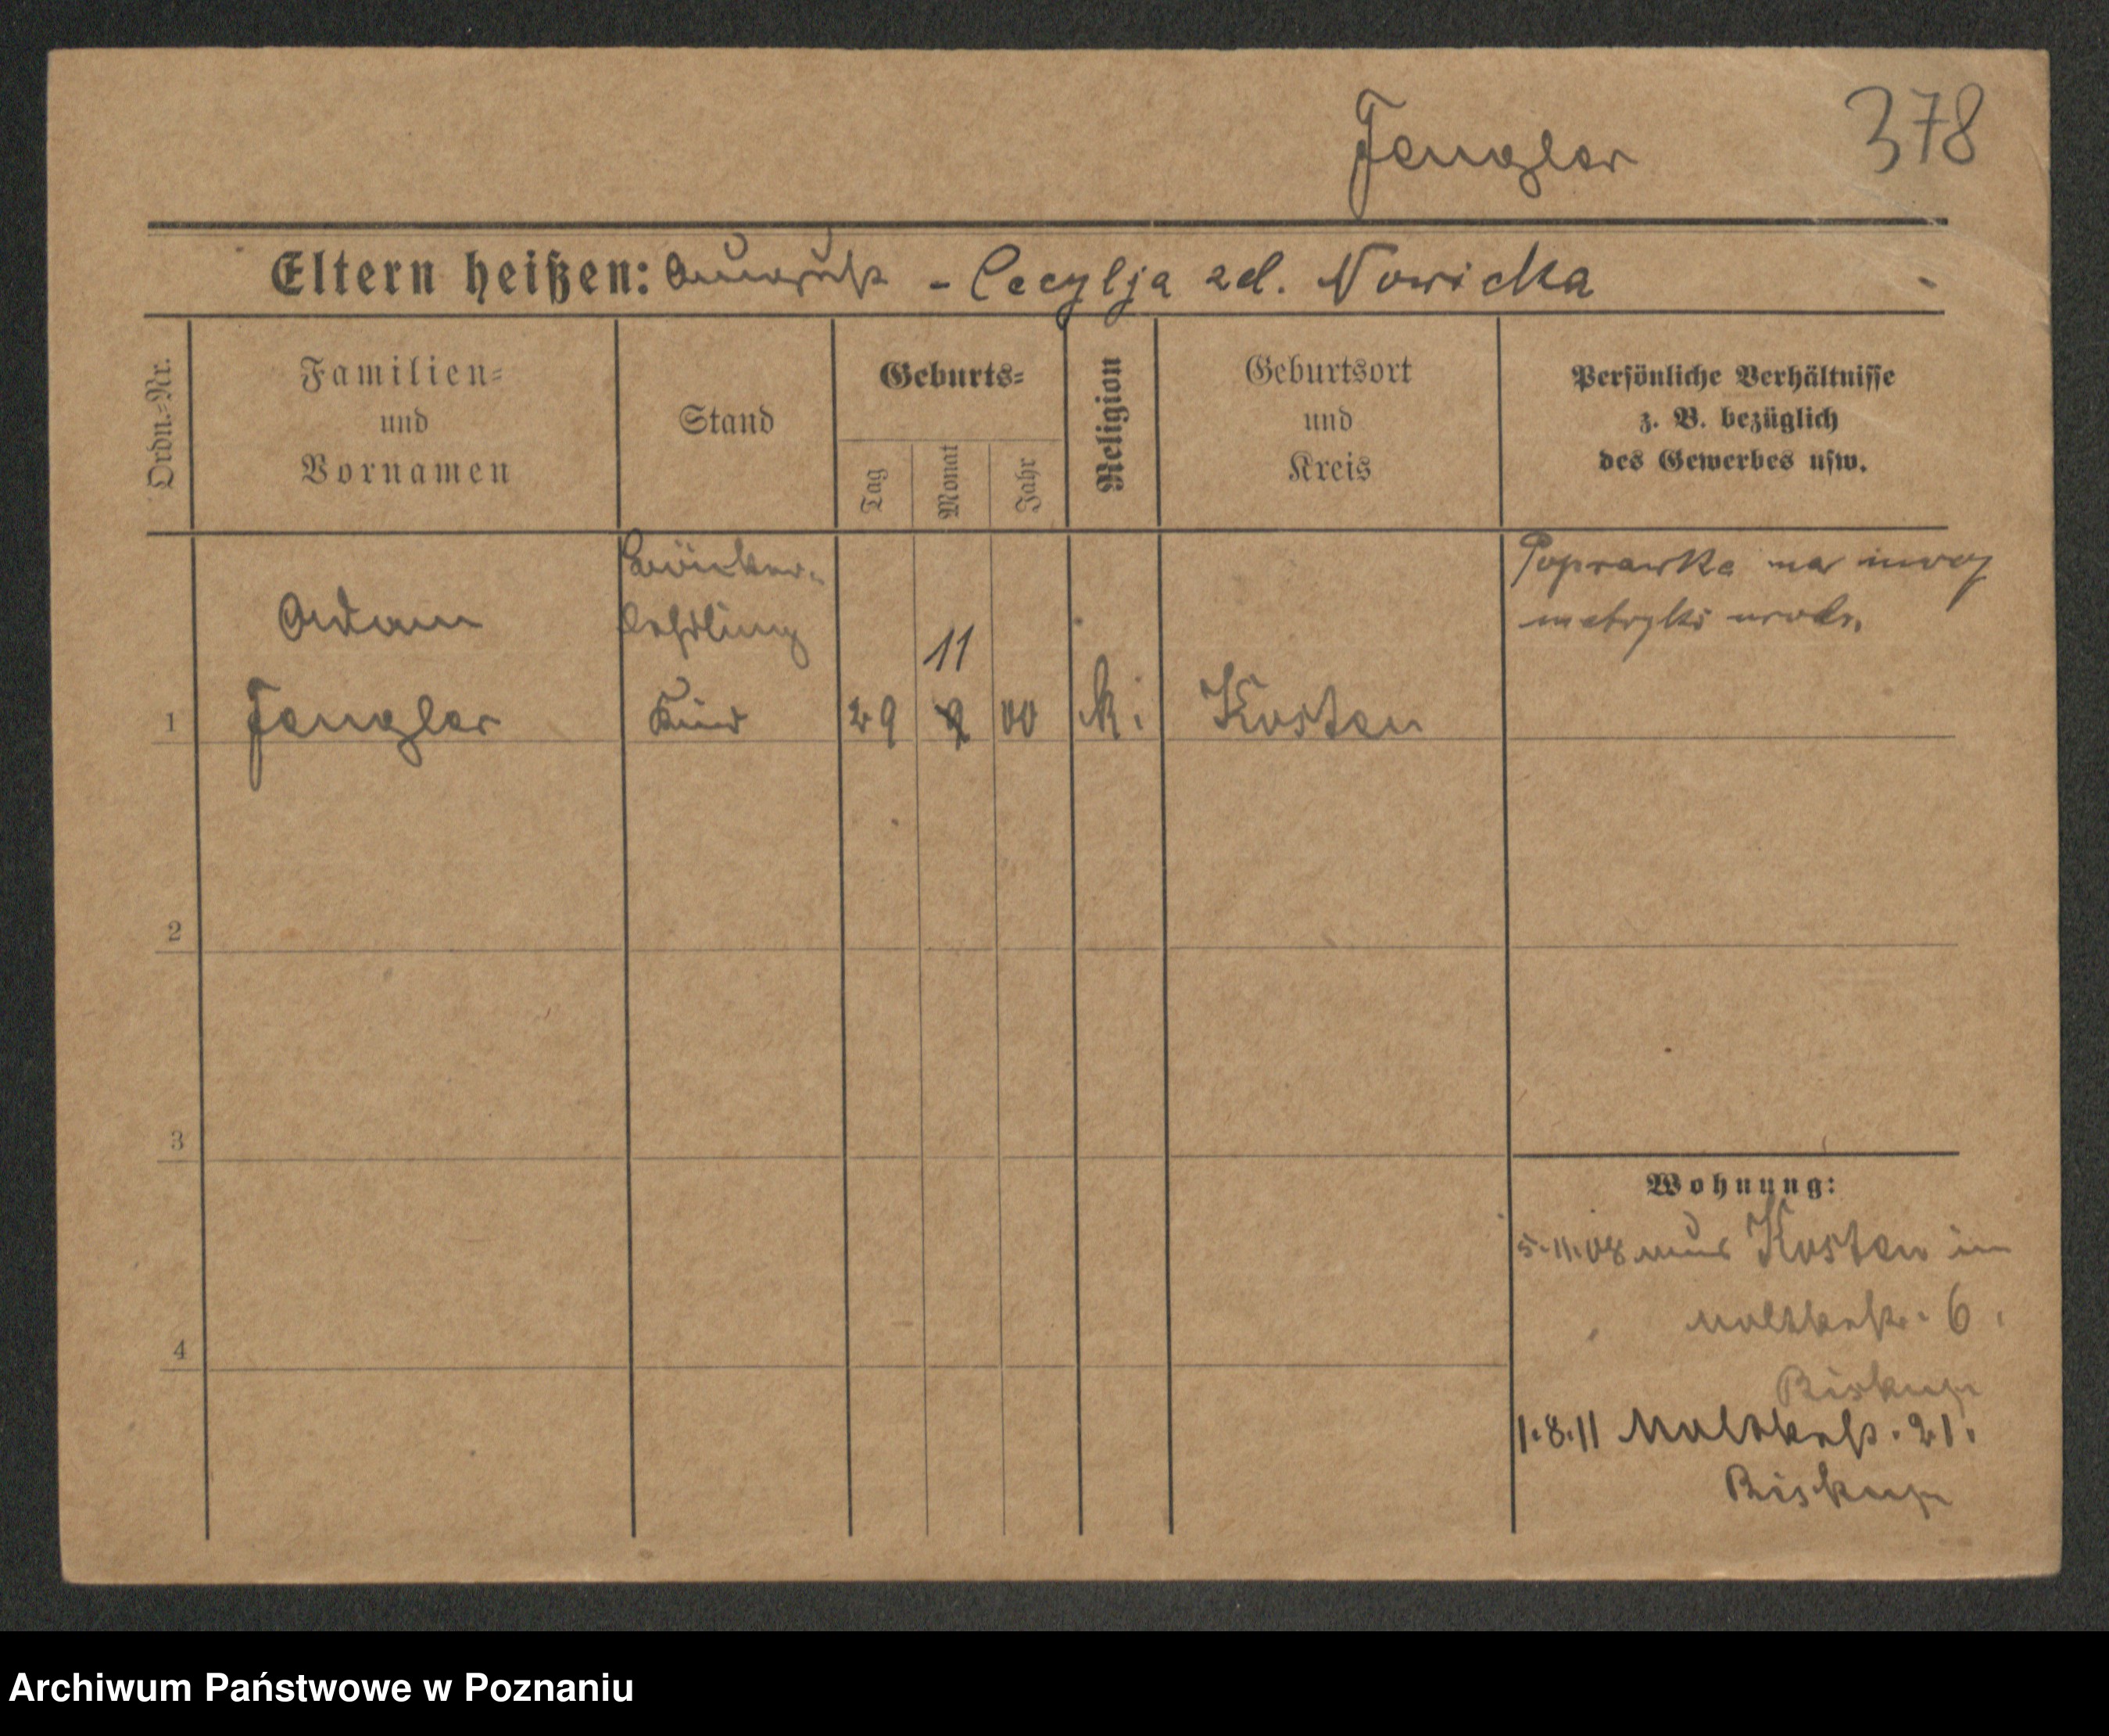 Fengler
378
Eltern heißen: August - Cecylja zd. Nowicka
Ordn.-Nr.
Familien-
und
Vornamen
Stand
Geburts-
Tag
Monat
Jahr
Religion
Geburtsort
und
Kreis
Persönliche Verhältnisse
z. B. bezüglich
des Gewerbes usw.
Adam
Fengler
lehrling
Kind
1
29
9
11
00
k.
Kosten
Poprawka na mocy
metryki urodz.
2
3
4
Wohnung:
5.11.08 aus Kosten in
Moltkestr. 6.
Biskup
1.8.11 Moltkestr. 21.
Biskup
Archiwum Państwowe w Poznaniu